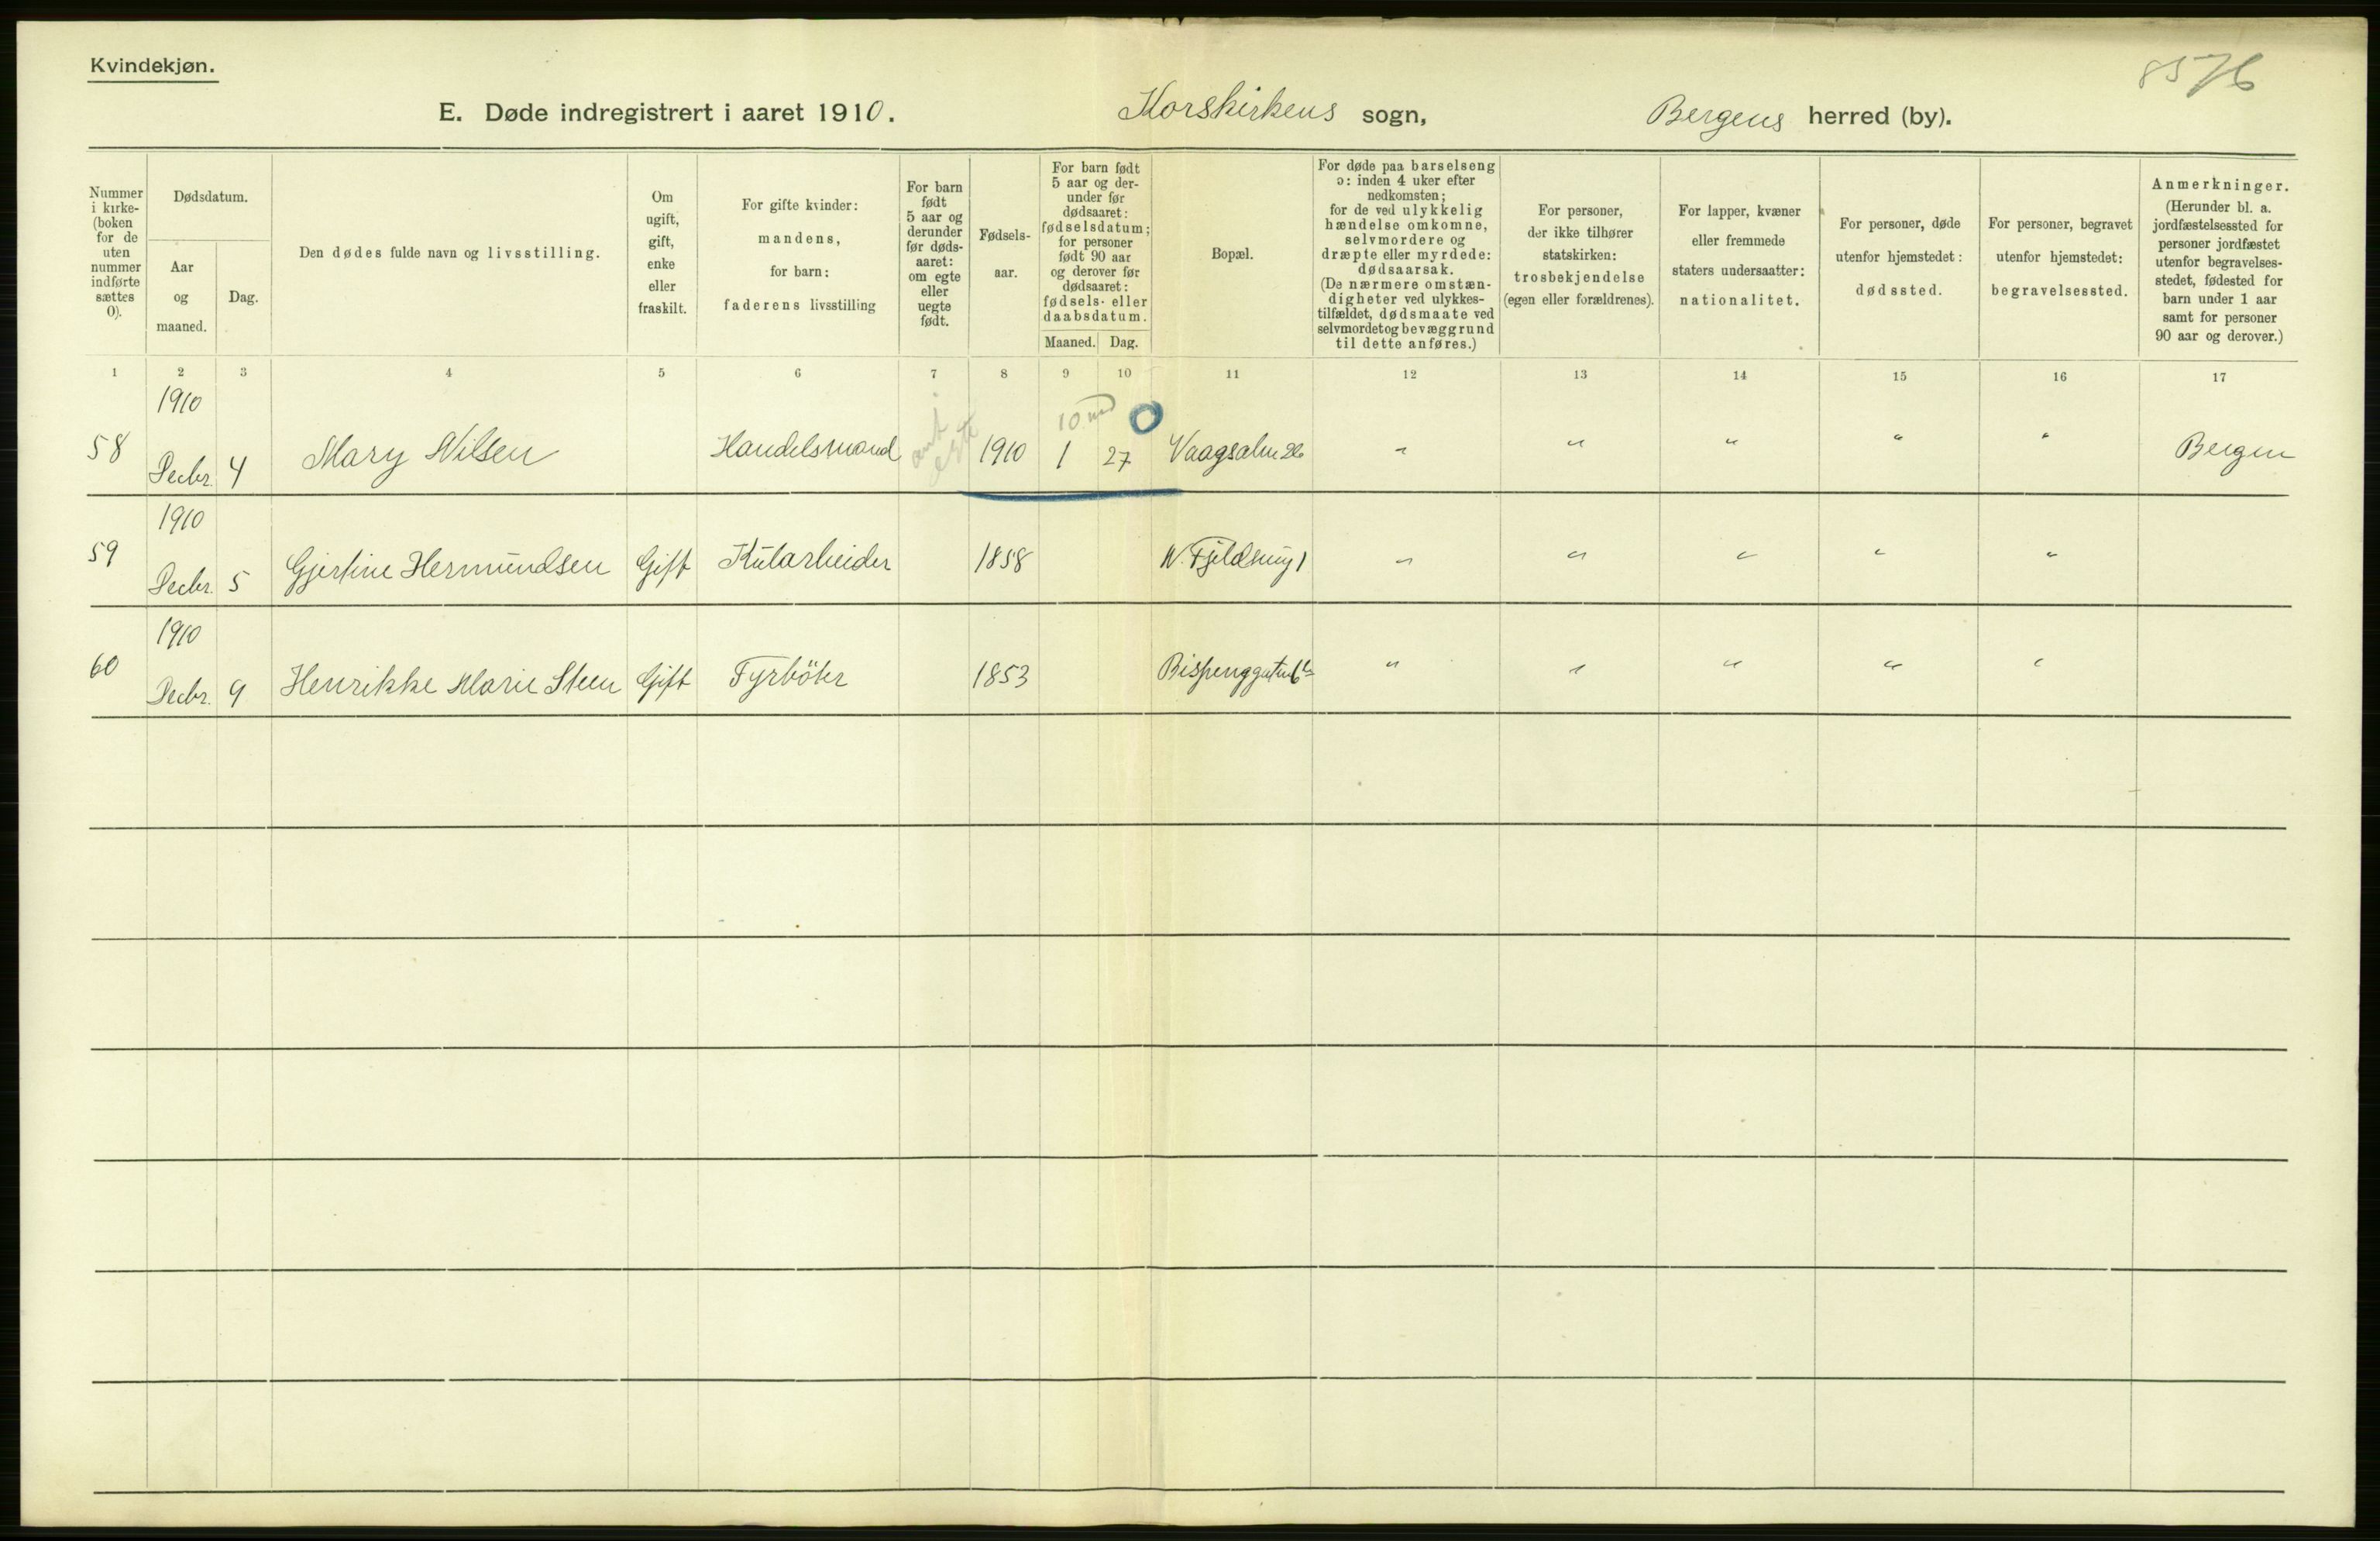 Kvindekjøn.
8576
E. Døde indregistrert i aaret 1910. Korskirkens sogn, Bergens herred (by).
Nummer i kirke- (boken for de uten nummer indførte sættes 0).
Dødsdatum.
Aar og maaned.
Dag.
Den dødes fulde navn og livsstilling.
Om ugift, gift, enke eller fraskilt.
For gifte kvinder: mandens, for barn: faderens livsstilling
For barn født 5 aar og derunder før døds- aaret: om egte eller uegte født.
Fødsels- aar.
For barn født 5 aar og der- under før dødsaaret: fødselsdatum; for personer født 90 aar og derover før dødsaaret: fødsels- eller daabsdatum.
Maaned. Dag.
Bopæl.
For døde paa barselseng ɔ: inden 4 uker efter nedkomsten; for de ved ulykkelig hændelse omkomne, selvmordere og dræpte eller myrdede: dødsaarsak. (De nærmere omstæn- digheter ved ulykkes- tilfældet, dødsmaate ved selvmordet og bevæggrund til dette anføres.)
For personer, der ikke tilhører statskirken: trosbekjendelse (egen eller forældrenes).
For lapper, kvæner eller fremmede staters undersaatter: nationalitet.
For personer, døde utenfor hjemstedet: dødssted.
For personer, begravet utenfor hjemstedet: begravelsessted.
Anmerkninger. (Herunder bl. a. jordfæstelsessted for personer jordfæstet utenfor begravelses- stedet, fødested for barn under 1 aar samt for personer 90 aar og derover.)
1 2 3 4 5 6 7 8 9 10 11 12 13 14 15 16 17
1910
10 md 0
58 Decbr. 4 Mary Nilsen Handelsmand egte 1910 1 27 Vaagsalm 26 " " " " " Bergen
1910
59 Decbr. 5 Gjertine Hermundsen Gift Kularbeider 1858 N. Fjeldsmug 1 " " " " "
1910
60 Decbr. 9 Henrikke Marie Steen Gift Fyrböter 1853 Bispenggaten " " " " "